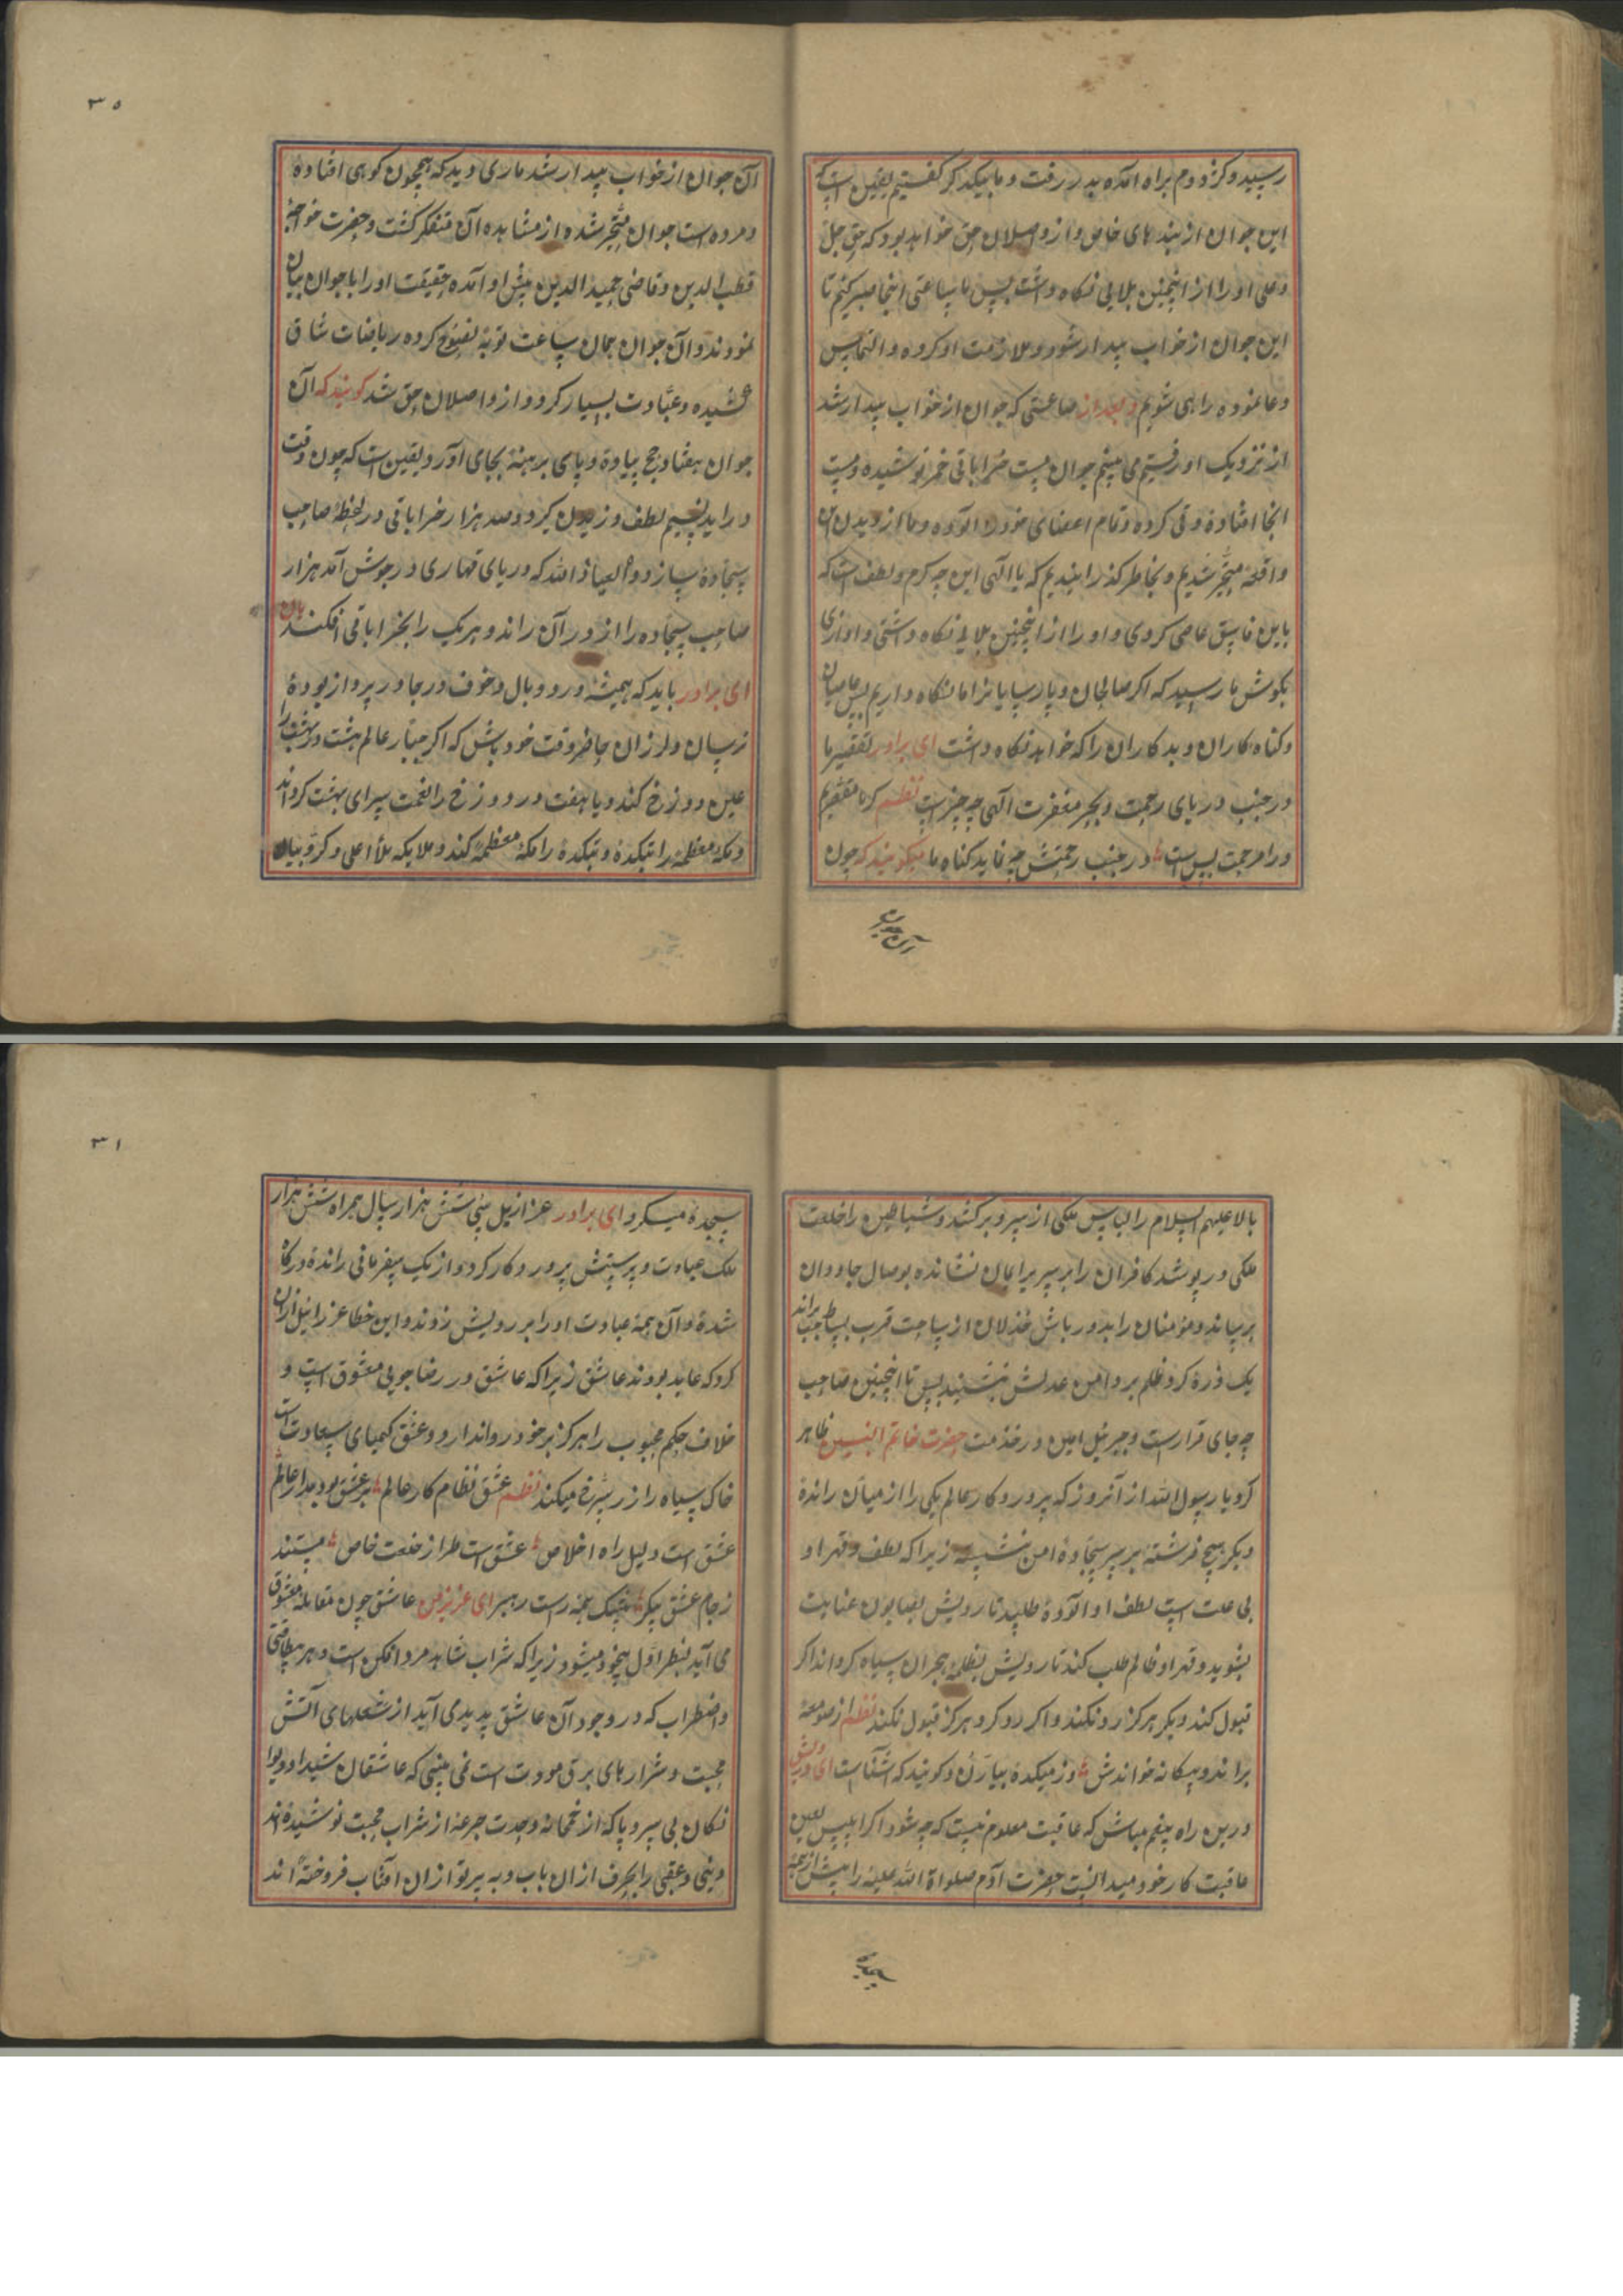 رسید و کژدوم براه آمده بدر رفت و ما بیکدیگر گفتیم یقین است که
این جوان از بندهای خاص و از واصلان حق خواهد بود که حق جل
وعلی او را از اینچنین بلایی نگاه داشت پس ما ساعتی اینجا صبر کنیم تا
این جوان از خواب بیدار شود و ملازمت او کرده و التماس
دعا نموده راهی شویم و بعد از ساعتی که جوان از خواب بیدار شد
از نزدیک او رفتیم می بینم جوان مست خراباتی خمر نوشیده و مست
آنجا افتاده و قی کرده و تمام اعضای خود را آلوده و ما از دیدن این
واقعه متحیر شدیم و بخاطر گذرانیدیم که یا الهی این چه کرم و لطف است که
باین فاسق عاصی کردی و او را از اینچنین بلایی نگاه داشتی و آوازی
بگوش ما رسید که اگر صالحان و پارسایانرا ما نگاه داریم پس عاصیان
و گناه کاران و بدکاران را که خواهد نگاه داشت ای برادر تقصیر ما
در جنب دریای رحمت و بحر مغفرت الهی چه چیز است نظم گر ما مقصریم
ورا مرحمت بس است در جنب رحمتش چه نماید گناه ما میگویند که چون
آن جوان
۳۰
آن جوان از خواب بیدار شد ماری دید که همچون کوهی افتاده
و مرده است جوان متحیر شده از مشاهده آن متفکر گشت و حضرت خواجه
قطب الدین و قاضی حمید الدین پیش او آمده حقیقت او را با جوان بیان
نمودند و آن جوان همان ساعت توبه نصوح کرده ریاضات شاق
کشیده و عبادت بسیار کرد و از واصلان حق شد گویند که آن
جوان هفتاد حج پیاده و پای برهنه بجای آورد و یقین است که چون وقت
در آید نسیم لطف وزیدن گیرد و صد هزار خراباتی در لحظه صاحب
سجاده سازد و العیاذ الله که دریای قهاری در جوش آمد هزار
صاحب سجاده را از در آن راند و هر یک را بخراباتی افکند هان
ای برادر باید که همیشه در و وبال و خوف و رجا در پرواز بوده
ترسان و لرزان حاظر وقت خود باش که اگر جبار عالم هشت بهشت را
عین دوزخ کند و یا هفت در دوزخ را نعمت سرای بهشت گرداند
و مکه معظمه را بتکده و بتکده را مکه معظمه کند و ملایکه ملأ اعلی و کروبیان
بالا علیهم السلام را لباس ملکی از سر و بر کشند و شیاطین را خلعت
ملکی در پوشد کافران را بر سریر ایمان نشانده بوصال جاودان
برساند و مؤمنان را بدورباش خذلان از ساحت قرب بساط براند
یک ذره گرد ظلم بر دامن عدلش ننشیند پس تا اینچنین صاحب
چه جای قرارست و جبرئیل امین در خدمت حضرت خاتم النبیین ظاهر
کرد یا رسول الله از آنروز که پروردگار عالم یکی را از میان رانده
دیگر هیچ فرشته بر سر سجاده امن ننشسته زیرا که لطف و قهر او
بی علت است لطف او آلوده طلبد تا رویش بصابون عنایت
بشوید و قهر او ظالم طلب کند تا رویش بظلمه هجران سیاه گرداند اگر
قبول کند دیگر هرگز رد نکند و اگر رد کرد هرگز قبول نکند نظم از صومعه
براند و بیگانه خواندش وز میکده بیارد و گویند که آشناست ای درویش
درین راه بیغم مباش که عاقبت معلوم نیست که چه شود اگر ابلیس لعین
عاقبت کار خود میدانست حضرت آدم صلواة الله علیه را پیش از همه
سجده
۳۱
سجده میکرد ای برادر عزازیل بینی شش هزار سال همراه شش هزار
ملک عبادت و پرستش پروردگار کرد و از یک بیفرمانی رانده درگاه
شده و آن همه عبادت او را بر رویش زدند و این خطا عزرائیل ازان
کرد که عابد بود نه عاشق زیرا که عاشق در رضا جویی معشوق است و
خلاف حکم محبوب را هرگز بر خود روا ندارد و عشق کیمیای سعادت است
خاک سیاه را زر سرخ میکند نظم عشق نظام کار عالم بر عشق بود مدار عالم
عشق است دلیل راه اخلاص عشق است طراز خلعت خاص مستند
ز جام عشق یکسر همه راست رهبر ای عزیز من عاشق چون مقابله معشوق
می آید بنظر اول بیخود میشود زیرا که شراب شاهد مرد افکن است و هر بیطاقتی
و اضطراب که در وجود آن عاشق پدیدی آید از شعلهای آتش
محبت و شرارهای برق مودت است نمی بینی که عاشقان شیدا و دیوا
نگان بی سر و پا که از خمخانه وحدت جرعه از شراب محبت نوشیده اند
دینی و عقبی را بحرف ازان باب و به پرتو ازان آفتاب فروخته اند